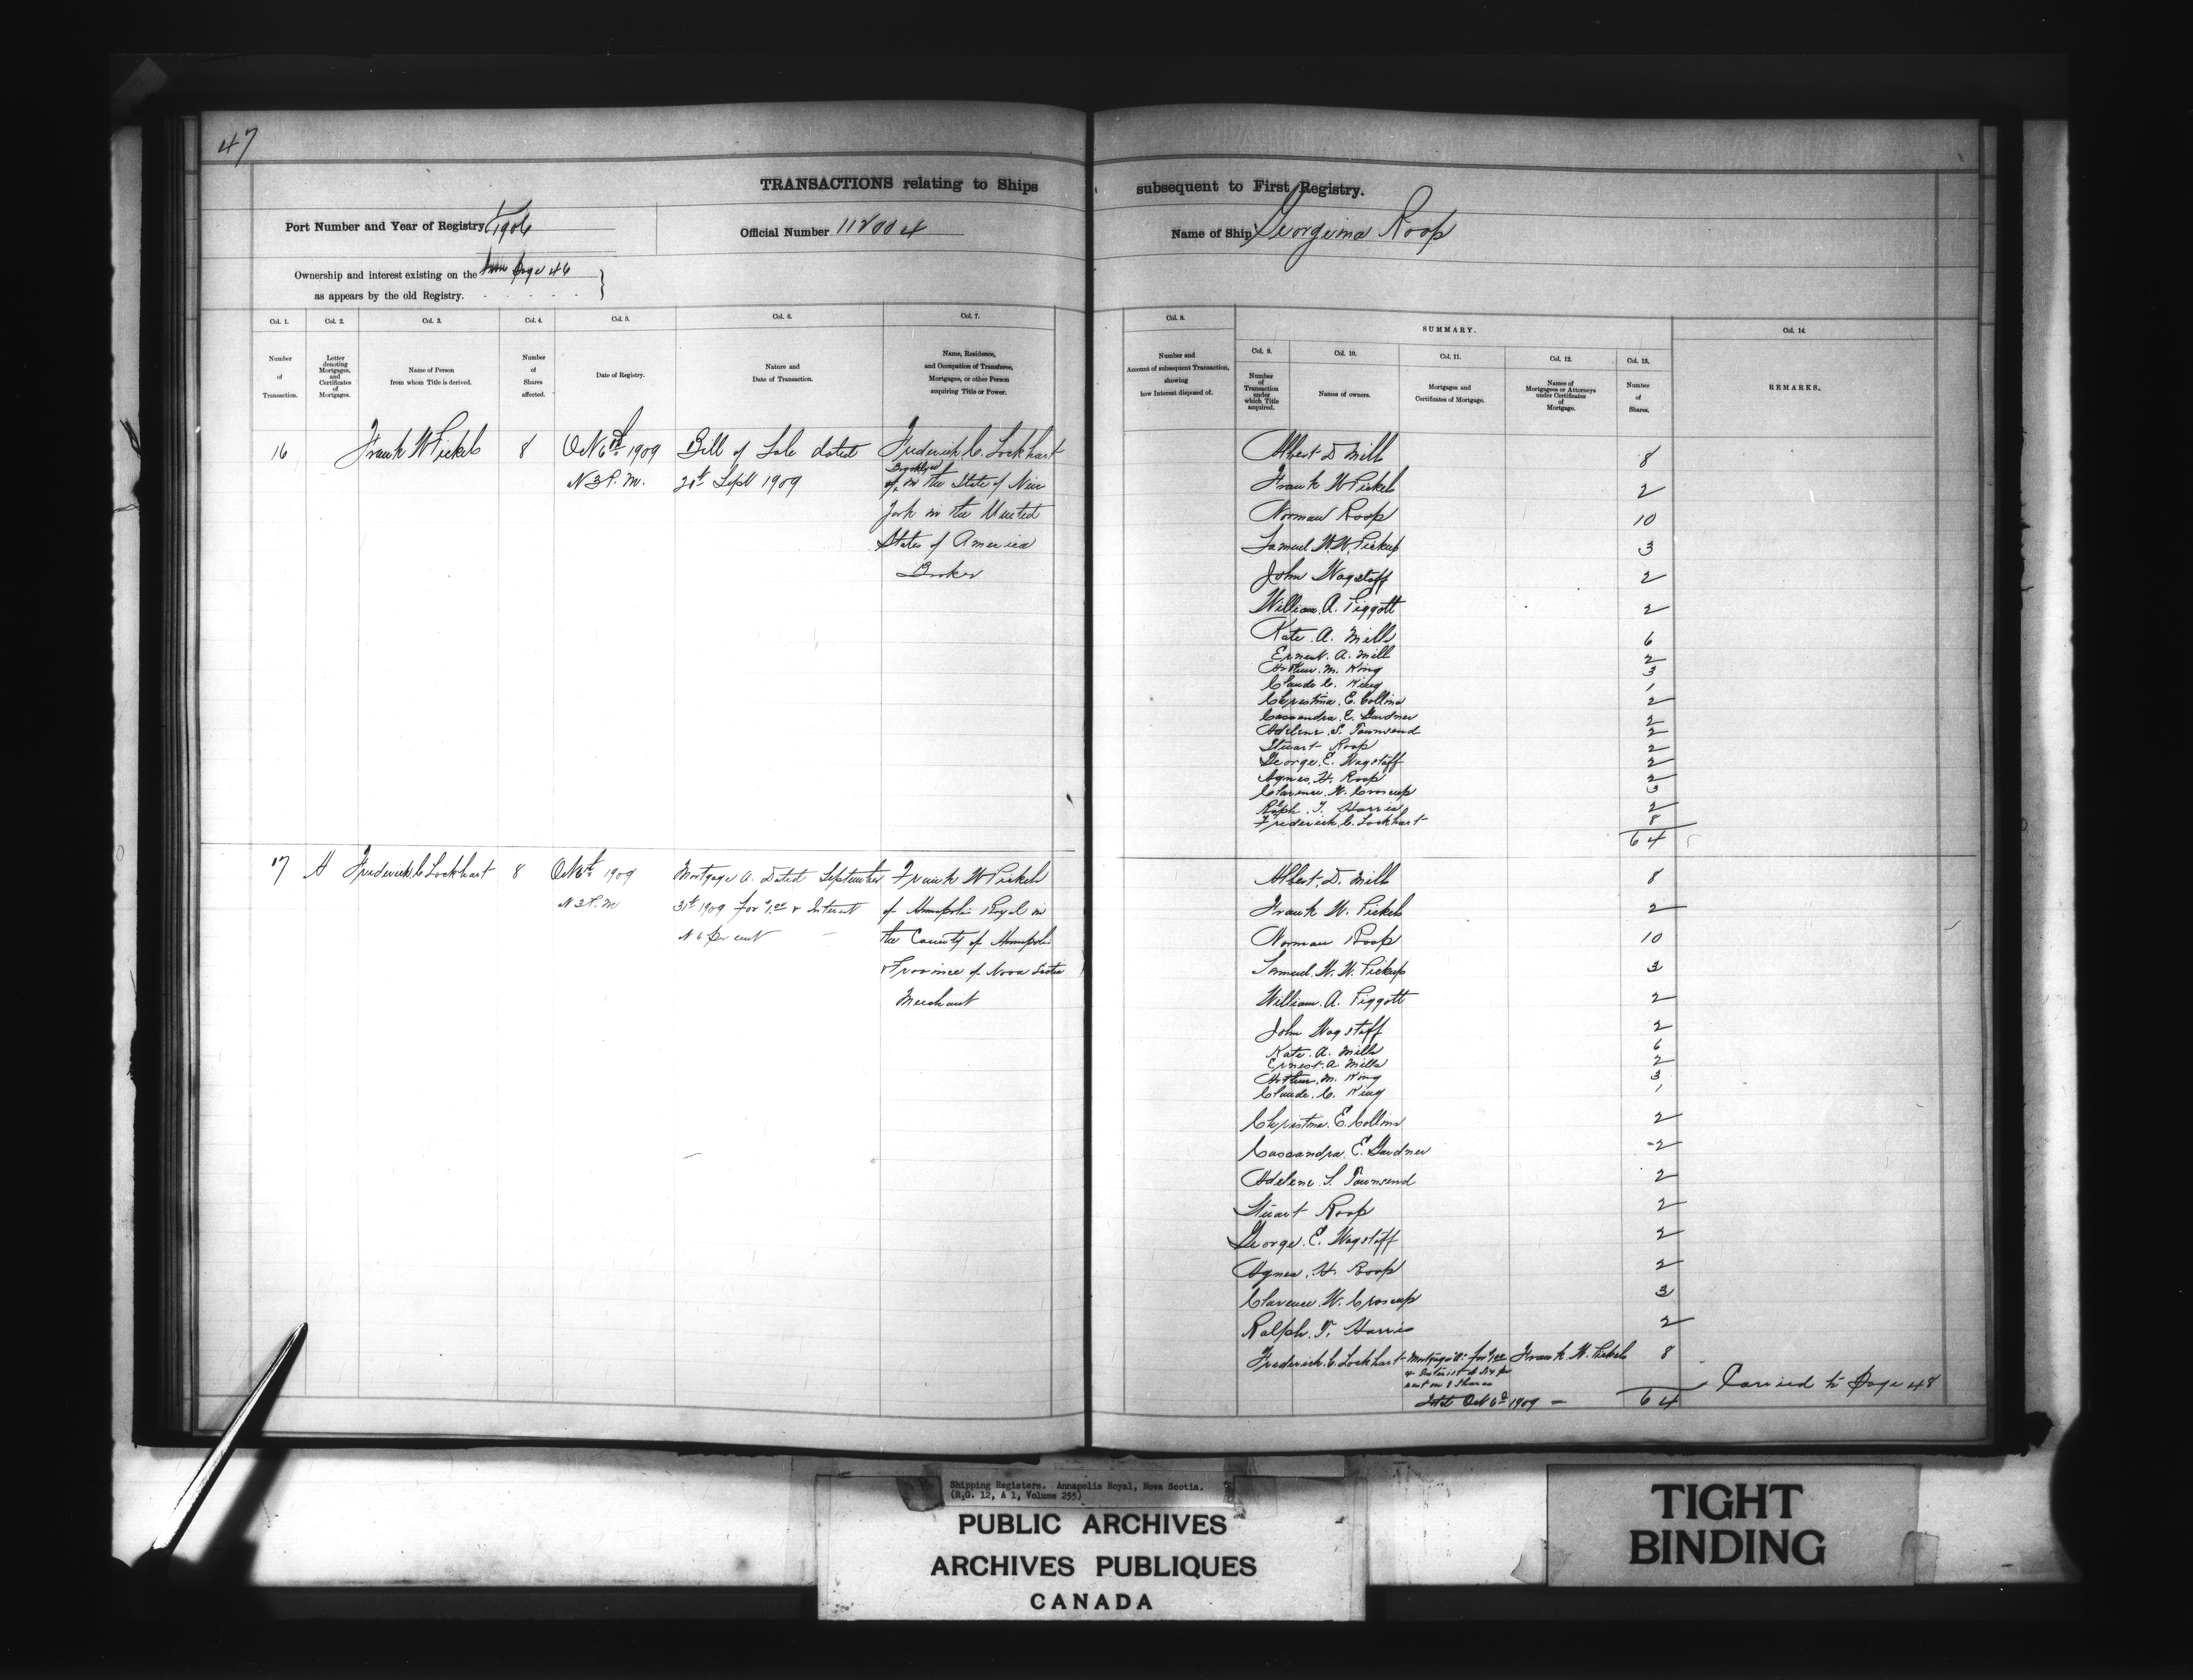 47
TRANSACTIONS relating to Ships subsequent to First Registry.
Port Number and Year of Registry 1/1906
Official Number 112004
Name of Ship Georgina Roop
Ownership and interest existing on the from Page 46
as appears by the old Registry.
Col. 1.
Number of Transaction.
Col. 2.
Letter denoting Mortgages, and Certificates of Mortgages.
Col. 3.
Name of Person from whom Title is derived.
Col. 4.
Number of Shares affected.
Col. 5.
Date of Registry.
Col. 6.
Nature and Date of Transaction.
Col. 7.
Name, Residence, and Occupation of Transferee, Mortgagee, or other Person acquiring Title or Power.
Col. 8.
Number and Account of subsequent Transaction, showing how Interest disposed of.
SUMMARY.
Col. 9.
Number of Transaction under which Title acquired.
Col. 10.
Names of owners.
Col. 11.
Mortgages and Certificates of Mortgage.
Col. 12.
Names of Mortgagees or Attorneys under Certificates of Mortgage.
Col. 13.
Number of Shares.
Col. 14.
REMARKS.
16 Frank W Pickels 8 Oct 6th 1909 Bill of Sale dated Frederick C. Lockhart
at 3 P.M. Sept 1909 of Brooklyn in the State of New
York in the United
States of America
Broker
Albert D Mills 8
Frank W Pickels 2
Norman Roop 10
Samuel W. W. Pickup 3
John Wagstaff 2
William A. Piggott 2
Kate A. Mills 6
Ernest A. Mills 2
Arthur M. King 3
Claude C. King 1
Christina E. Collins 2
Cassandra E. Gardner 2
Adelene S. Townsend 2
Stuart Roop 2
George E. Wagstaff 2
Agnes H. Roop 2
Clarence W. Croscup 3
Ralph T. Harris 2
Frederick C. Lockhart 8
64
17 A Frederick C Lockhart 8 Oct 6th 1909 Mortgage A. Dated September Frank W Pickels
at 3 P.M 1909 for & Interest of Annapolis Royal in
at 6 per cent the County of Annapolis
Province of Nova Scotia
Merchant
Albert D. Mills 8
Frank W. Pickels 2
Norman Roop 10
Samuel W. W. Pickup 3
William A. Piggott 2
John Wagstaff 2
Kate A. Mills 6
Ernest A Mills 2
Arthur M. King 3
Claude C. King 1
Christina E. Collins 2
Cassandra E. Gardner 2
Adelene S. Townsend 2
Stuart Roop 2
George E. Wagstaff 2
Agnes H. Roop 2
Clarence W. Croscup 3
Ralph T. Harris 2
Frederick C. Lockhart Mortgage A for Frank W. Pickels 8
& Interest at six per
cent on 8 shares
Oct 6th 1909 64
Carried to Page 48
Shipping Registers. Annapolis Royal, Nova Scotia.
(R.G. 12, A 1, Volume 255)
PUBLIC ARCHIVES
ARCHIVES PUBLIQUES
CANADA
TIGHT
BINDING